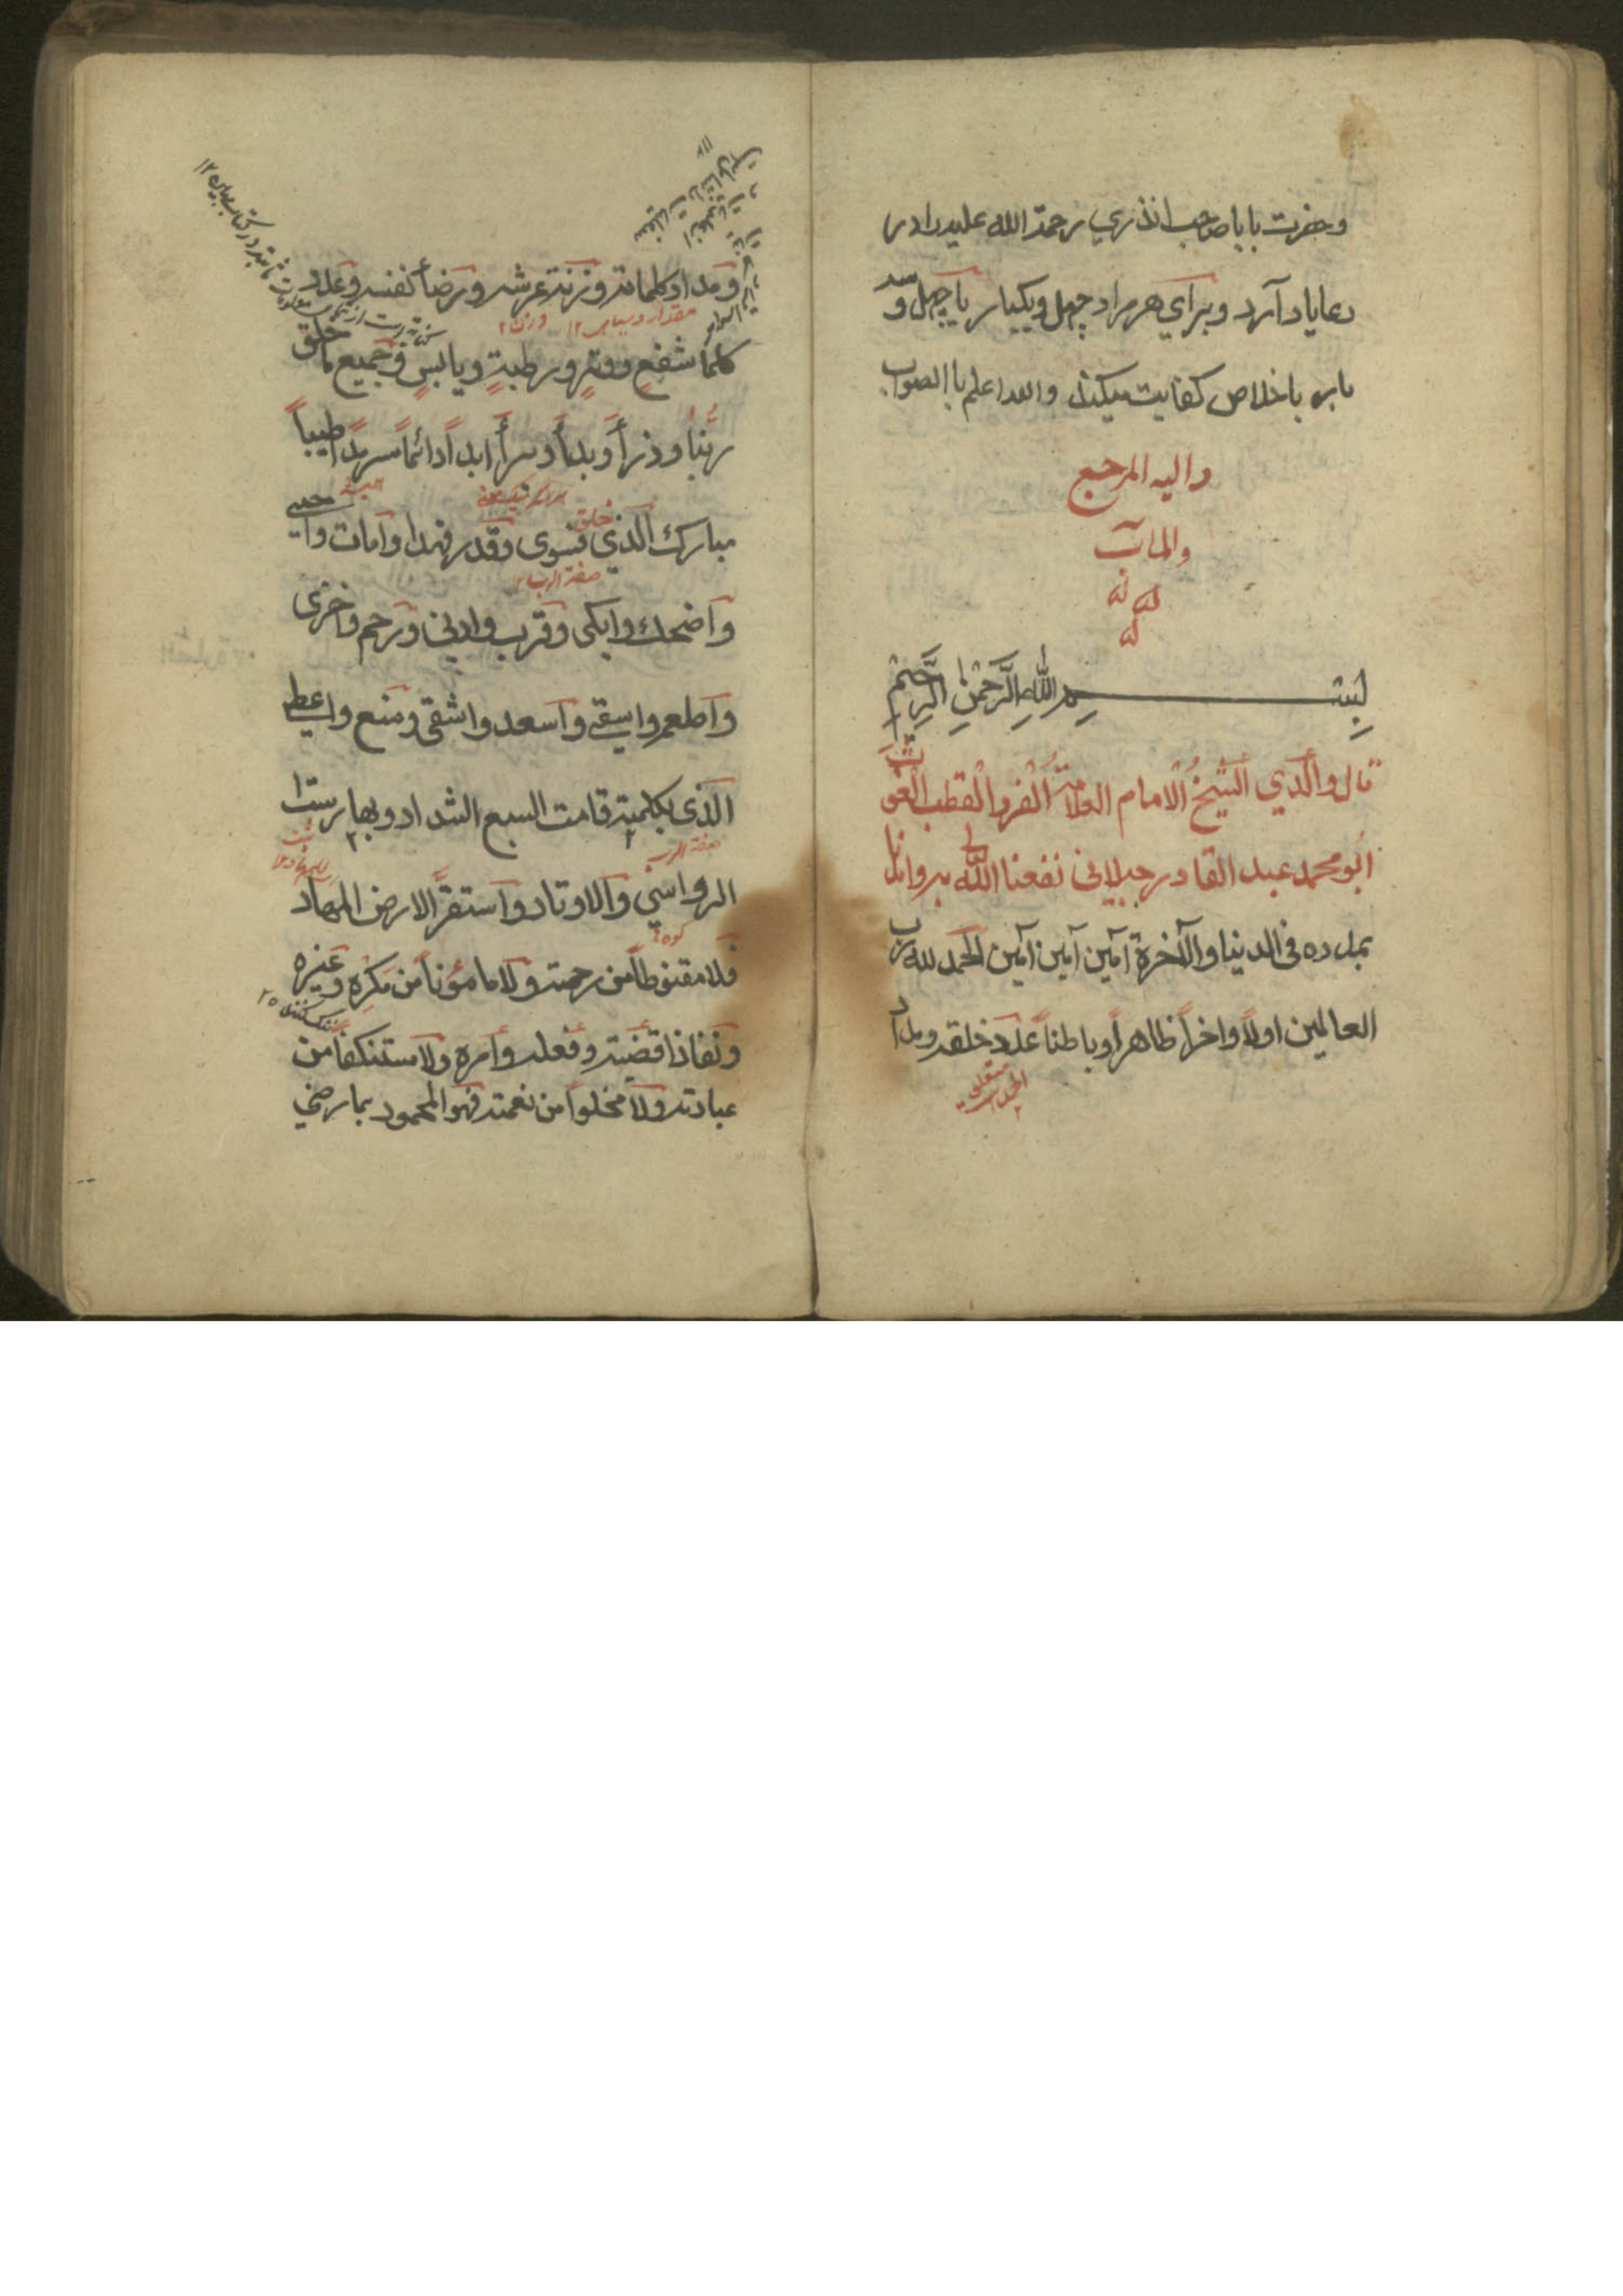 وحضرت بابا صاحب انذري رحمة الله عليه را در
دعا ياد آرد و براي هر مراد چهل و يكبار يا چهل و سه
بار باخلاص كفايت ميكند والله اعلم باالصواب
واليه المرجع
والمآب
بسم الله الرحمن الرحيم
قال والدي الشيخ الامام العلامة الفرد القطب الغوث
ابو محمد عبد القادر جيلاني نفعنا الله به وامدنا
بمدده في الدنيا والآخرة آمين آمين آمين الحمد لله رب
العالمين اولاً واخراً ظاهراً وباطناً عدد خلقه ومداد
متعلق
ومداد كلماته وزنة عرشه ورضاً نفسه وعدد
مقدار وسياهي ١٢ وزن ٢
كلما شفع ووتر ورطبة ويابس وجميع ما خلق
ربنا وذرأ وبدأ وبرأ ابداً دائماً سرمداً طيباً
مباركا الذي خلق فسوى وقدر فهدا وامات واحيى
صفة الرب ١٢
واضحك وابكى وقرب وادنى ورحم واخزى
واطعم واسقى واسعد واشقى ومنع واعطى
الذي بكلمته قامت السبع الشداد وبها رست
صفة الرب
الرواسي والاوتاد واستقر الارض المهاد
كوه
فلا مقنوطاً من رحمته ولا ماموناً من مكره وغيره
ونفاذ اقضيته وفعله وامره ولا مستنكفاً من
عبادته ولا مخلواً من نعمته فهو المحمود بما رضي